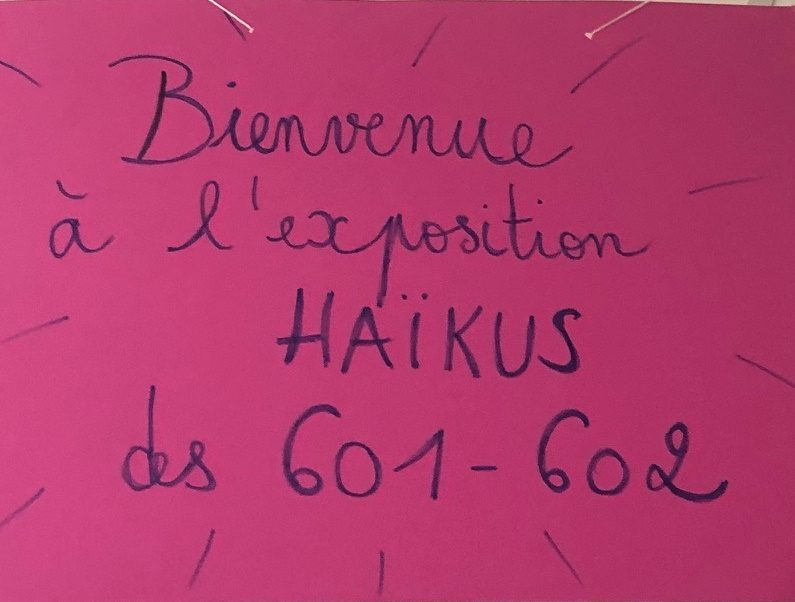 Bienvenue
à l'exposition
HAÏKUS
des 601-602